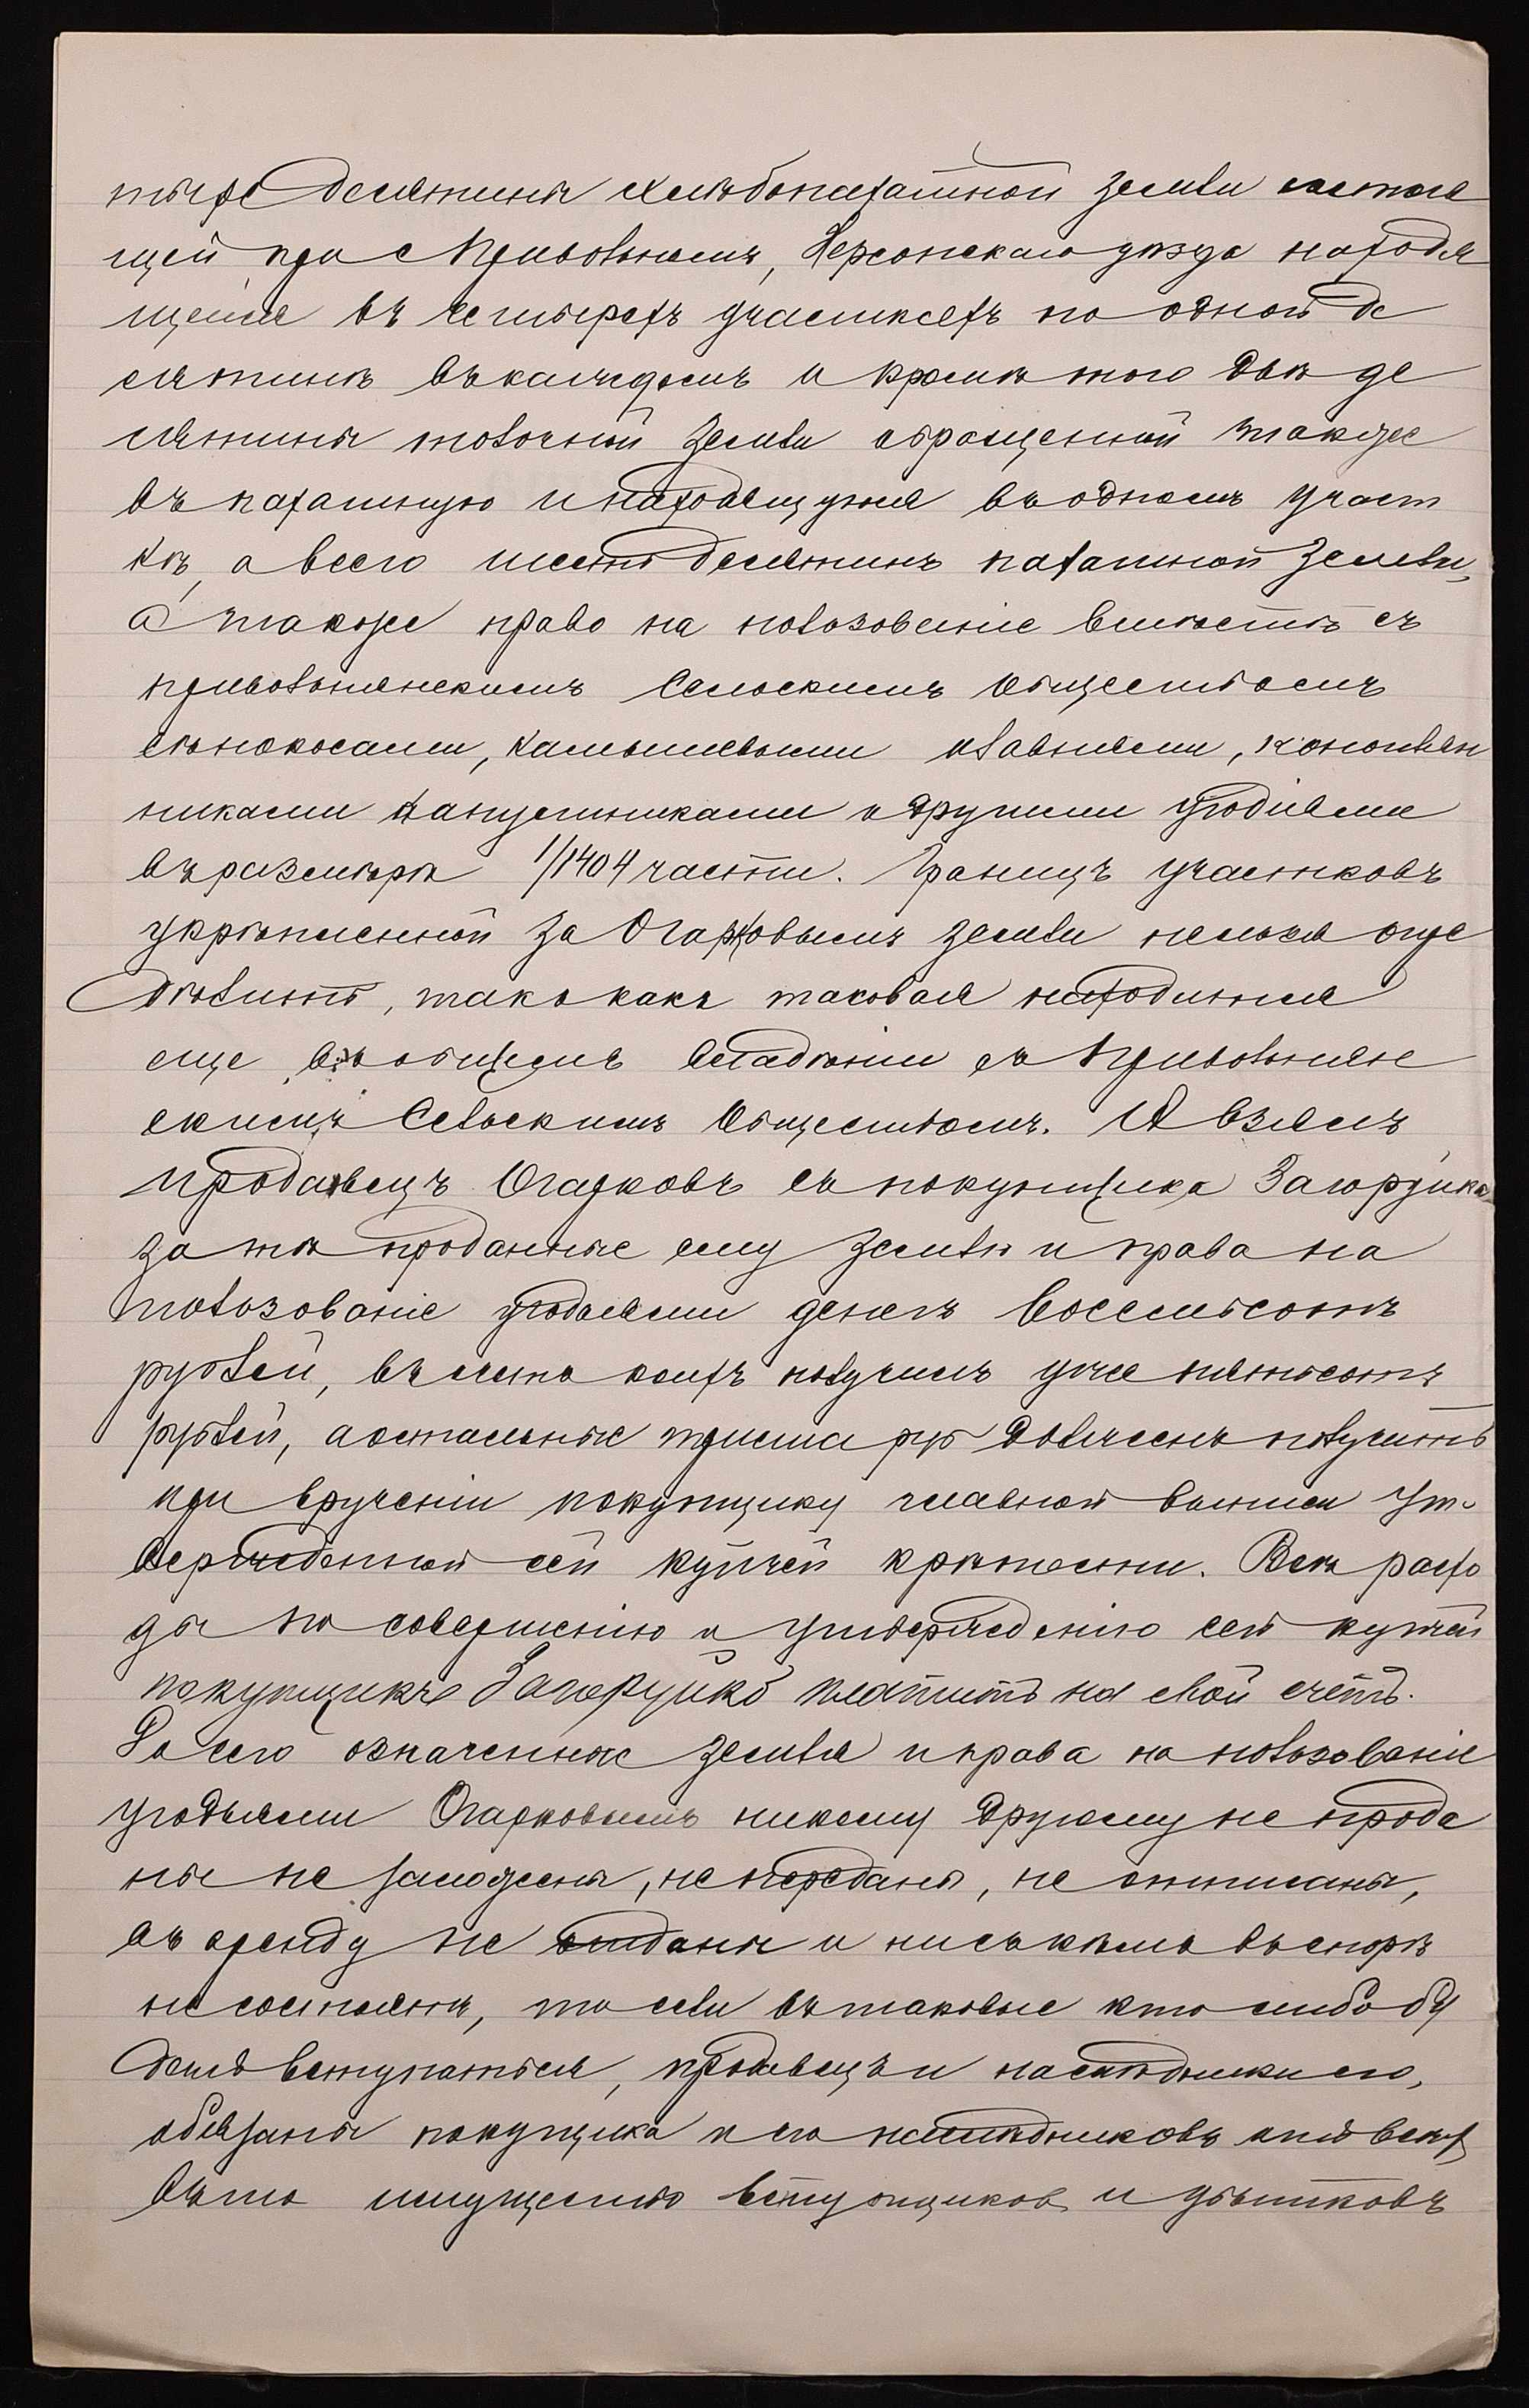 тыре десятины хлебопахатной земли состоя
щей при с Привольномъ, Херсонскаго уезда находя
щейся въ четырехъ участкахъ по одной де
сятинѣ въ каждомъ и кромѣ того двѣ де
сятины толочной земли обращенной также
въ пахатную и находящуюся въ одномъ участ
кѣ, а всего шесть десятинъ пахатной земли,
а также право на пользованіе вмѣстѣ съ
привольнянскимъ Сельскимъ Обществомъ
сѣнокосами, камышевыми плавнями, коноплян
никами капустниками и другими угодіями
въ размѣрѣ 1/1404 части. Границъ участковъ
укрѣпленной за Огарковымъ земли нельзя опре
дѣлить, такъ какъ таковая находится
еще въ общемъ владѣніи съ Привольнян
скимъ Сельскимъ Обществомъ. И взялъ
продавецъ Огарковъ съ покупщика Загоруйка
за тѣ проданные ему земли и права на
пользованіе угодьями денегъ восемьсотъ
рублей, въ счетъ коихъ получилъ уже пятьсотъ
рублей, а остальные триста руб долженъ получить
при врученіи покупщику главной выписи ут-
вержденной сей купчей крѣпости. Всѣ расхо
ды по совершенію и утвержденію сей купчей
покупщикъ Загоруйко платитъ на свой счетъ.
До сего означенные земля и права на пользованіе
угодьями Огарковымъ никому другому не прода
ны не заложены, не переданы, не отписаны,
въ аренду не отданы и ни съ кѣмъ въ спорѣ
не состоятъ, то если въ таковые кто либо бу
детъ вступаться, продавецъ и наслѣдники его,
обязаны покупщика и его наслѣдниковъ отъ всѣхъ
въ то имущество вступщиков и убытковъ